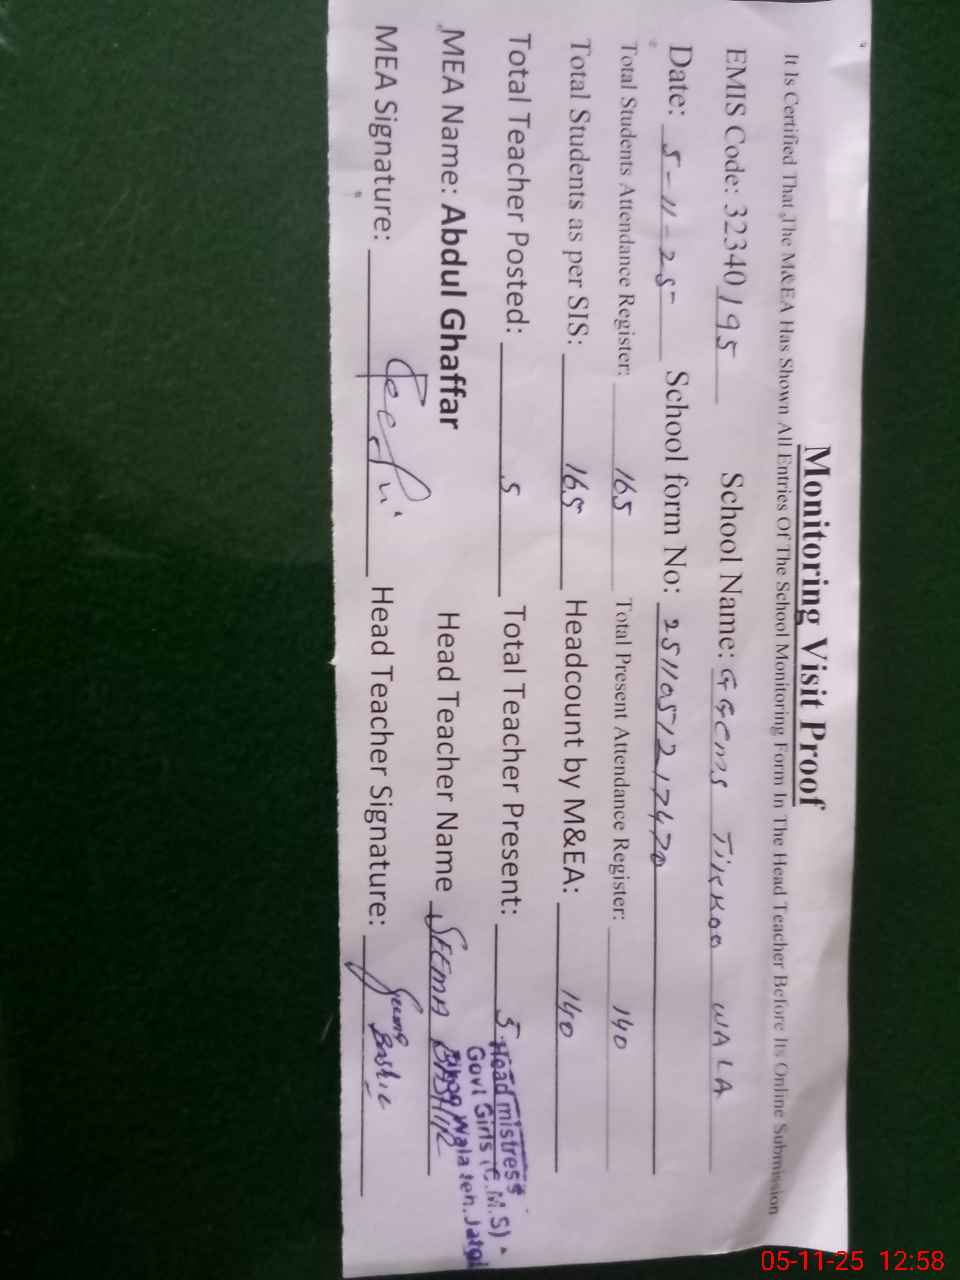 Monitoring Visit Proof
It Is Certified That ,The M&EA Has Shown All Entries Of The School Monitoring Form In The Head Teacher Before Its Online Submission
EMIS Code: 32340195 School Name: GGCMS WALA
Date: 5-11-25 School form No: 2511051217470
Total Students Attendance Register: 165 Total Present Attendance Register: 140
Total Students as per SIS: 165 Headcount by M&EA: 140
Total Teacher Posted: 5 Total Teacher Present: 5
MEA Name: Abdul Ghaffar Head Teacher Name SEEMA BASHIR
MEA Signature: Head Teacher Signature: Seema Bashir
Head mistress
Govt Girls (C.M.S)
Wala teh.
05-11-25 12:58